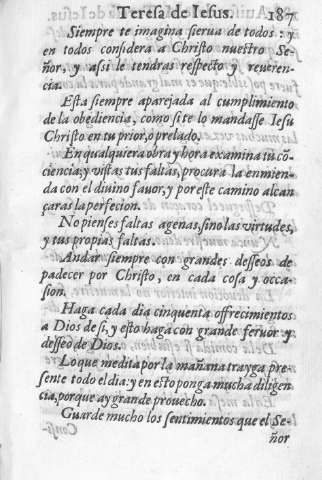 Teresa de Iesus. 187
Siempre te imagina sierua de todos: y
en todos considera a Christo nuestro Se-
ñor, y assi le tendras respecto y reueren-
cia.
Esta siempre aparejada al cumplimiento
de la obediencia, como si te lo mandasse Iesu
Christo en tu prior, o prelado.
En qualquiera obra y hora examina tu cõ-
ciencia: y vistas tus faltas, procura la enmien-
da con el diuino fauor, y por este camino alcan
çaras la perfecion.
No pienses faltas agenas, sino las virtudes,
y tus propias faltas.
Andar siempre con grandes desseos de
padecer por Christo, en cada cosa y occa-
sion.
Haga cada dia cinquenta offrecimientos
a Dios de si, y esto haga con grande feruor y
desseo de Dios.
Lo que medita por la mañana trayga pre-
sente todo el dia: y en esto ponga mucha diligen
cia, porque ay grande prouecho.
Guarde mucho los sentimientos que el Se-
ñor